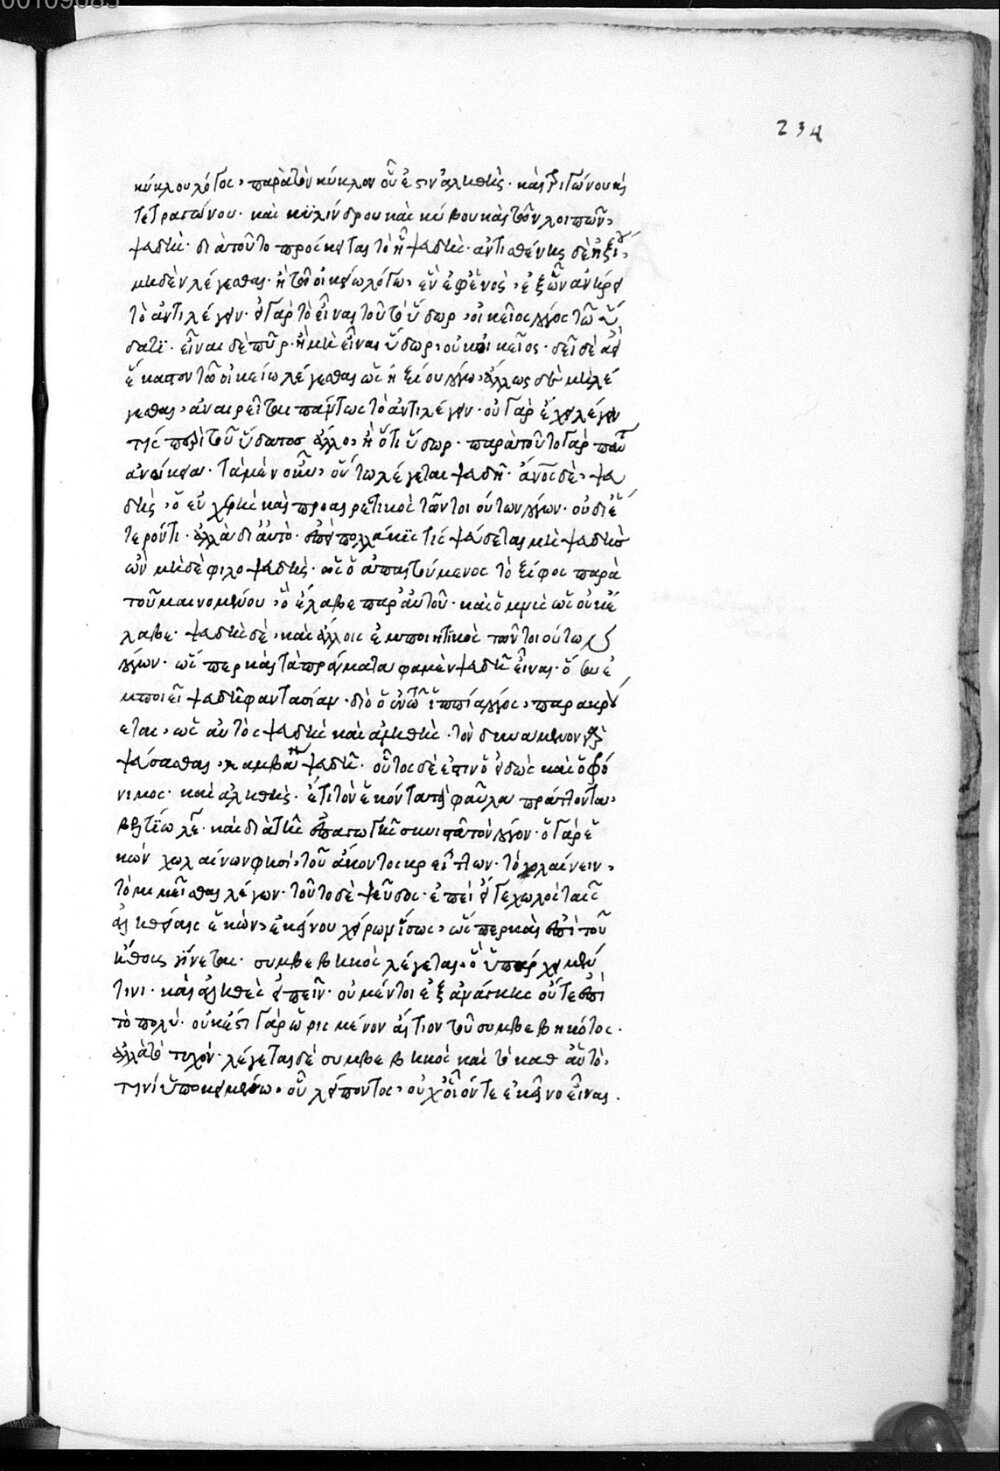 00109085
234
κύκλου λόγος, παρὰ τὸν κύκλον οὗ ἐστιν ἀληθής. καὶ τριγώνου καὶ
τετραγώνου. καὶ κυλίνδρου καὶ κύβου καὶ τῶν λοιπῶν,
ψευδής. διὰ τοῦτο προσέκειται τὸ ᾗ ψευδής. ἀντισθένης δὲ ἠξίου,
μηδὲν λέγεσθαι. ἢ τῷ οἰκείῳ λόγῳ, ἓν ἐφ' ἑνός, ἐξ ὧν ἀνῄρει
τὸ ἀντιλέγειν. εἰ γὰρ τὸ εἶναι τοῦτο ὕδωρ, οἰκεῖος λόγος τῷ ὕ
δατι. εἶναι δὲ πῦρ. ἢ μὴ εἶναι ὕδωρ, οὐκ οἰκεῖος. δεῖ δὲ ἀεὶ
ἕκαστον τῷ οἰκείῳ λέγεσθαι ὡς ἠξίου λόγῳ, ἄλλως δὲ μὴ λέ
γεσθαι, ἀναιρεῖται πάντως τὸ ἀντιλέγειν. οὐ γὰρ ἔχει λέγειν
τις περὶ τοῦ ὕδατος ἄλλο, ἢ ὅτι ὕδωρ. παρὰ τοῦτο γὰρ πᾶν
ἀνοίκειον. τὰ μὲν οὖν, οὕτω λέγεται ψευδῆ. ἄνος δὲ, ψευ
δής, ὁ εὐχερὴς καὶ προαιρετικὸς τῶν τοιούτων λόγων. οὐ δι' ἕ
τερόν τι. ἀλλὰ δι' αὐτό. ἐπεὶ πολλάκις τις ψεύσεται μὴ ψευδὴς
ὢν μηδὲ φιλοψευδής. ὡς ὁ ἀπαιτούμενος τὸ ξίφος παρὰ
τοῦ μαινομένου, ὃ ἔλαβε παρ' αὐτοῦ. καὶ ὀμνὺς ὡς οὐκ ἔ
λαβε. ψευδὴς δὲ, καὶ ἄλλοις ἐμποιητικὸς τῶν τοιούτων
λόγων. ὥσπερ καὶ τὰ πράγματα φαμὲν ψευδῆ εἶναι. ὅσα ἐ
μποιεῖ ψευδῆ φαντασίαν. διὸ ὁ ἐν τῷ ἱππίᾳ λόγος, παρακρού
εται, ὡς αὐτὸς ψευδὴς καὶ ἀληθής. τὸν δυνάμενον γὰρ
ψεύσασθαι, λαμβάνει ψευδῆ. οὗτος δέ ἐστιν ὁ εἰδὼς καὶ ὁ φρό
νιμος. καὶ ἀληθής. ἔτι τὸν ἑκόντα τὰ φαῦλα πράττοντα,
βελτίω λέγει. καὶ διὰ τῆς ἐπαγωγῆς συνιστᾷ τὸν λόγον. ὁ γὰρ ἑ
κὼν χωλαίνων φησὶ, τοῦ ἄκοντος κρείττων. τὸ χωλαίνειν,
τὸ μιμεῖσθαι λέγων. τοῦτο δὲ ψεῦδος. ἐπεὶ εἴ γε χωλὸς ταῖς
ἀληθείαις ἑκών, ἐκείνου χείρων ἴσως, ὥσπερ καὶ ἐπὶ τοῦ
ἤθους γίνεται. συμβεβηκὸς λέγεται, ὃ ὑπάρχει μέν
τινι. καὶ ἀληθὲς εἰπεῖν. οὐ μέντοι ἐξ ἀνάγκης οὔτε ἐπὶ
τὸ πολύ. οὐκ ἔστι γὰρ ὡρισμένον αἴτιον τοῦ συμβεβηκότος.
ἀλλὰ τὸ τυχόν. λέγεται δὲ συμβεβηκὸς καὶ τὸ καθ' αὑτὸ,
τινὶ ὑποκειμένῳ. οὗ λείποντος, οὐχ οἷόν τε ἐκεῖνο εἶναι.